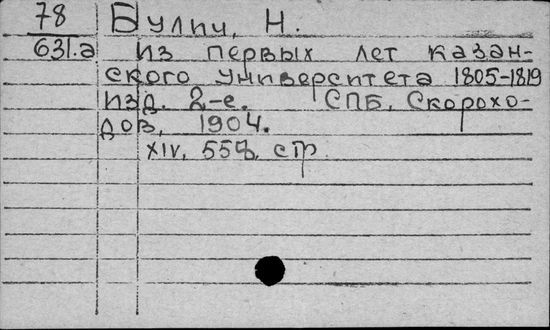 78 Булич, Н.
631.а Из первых лет казан-
ского университета 1805-1819
Изд. 2-е. СПБ, Скорохо-
дов, 1904.
XIV, 558, стр.